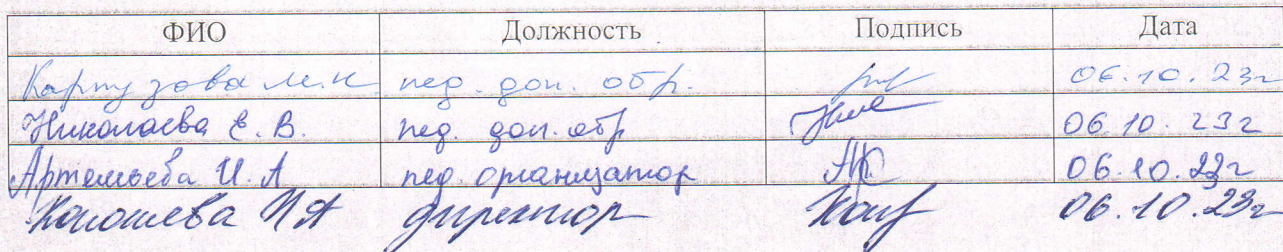 ФИО Должность Подпись Дата
Картузова М.Н. пед. доп. обр. 06.10.23г
Николаева Е.В. пед. доп. обр 06.10.23г
Артемьева И.А пед. организатор 06.10.23г
И А директор 06.10.23г